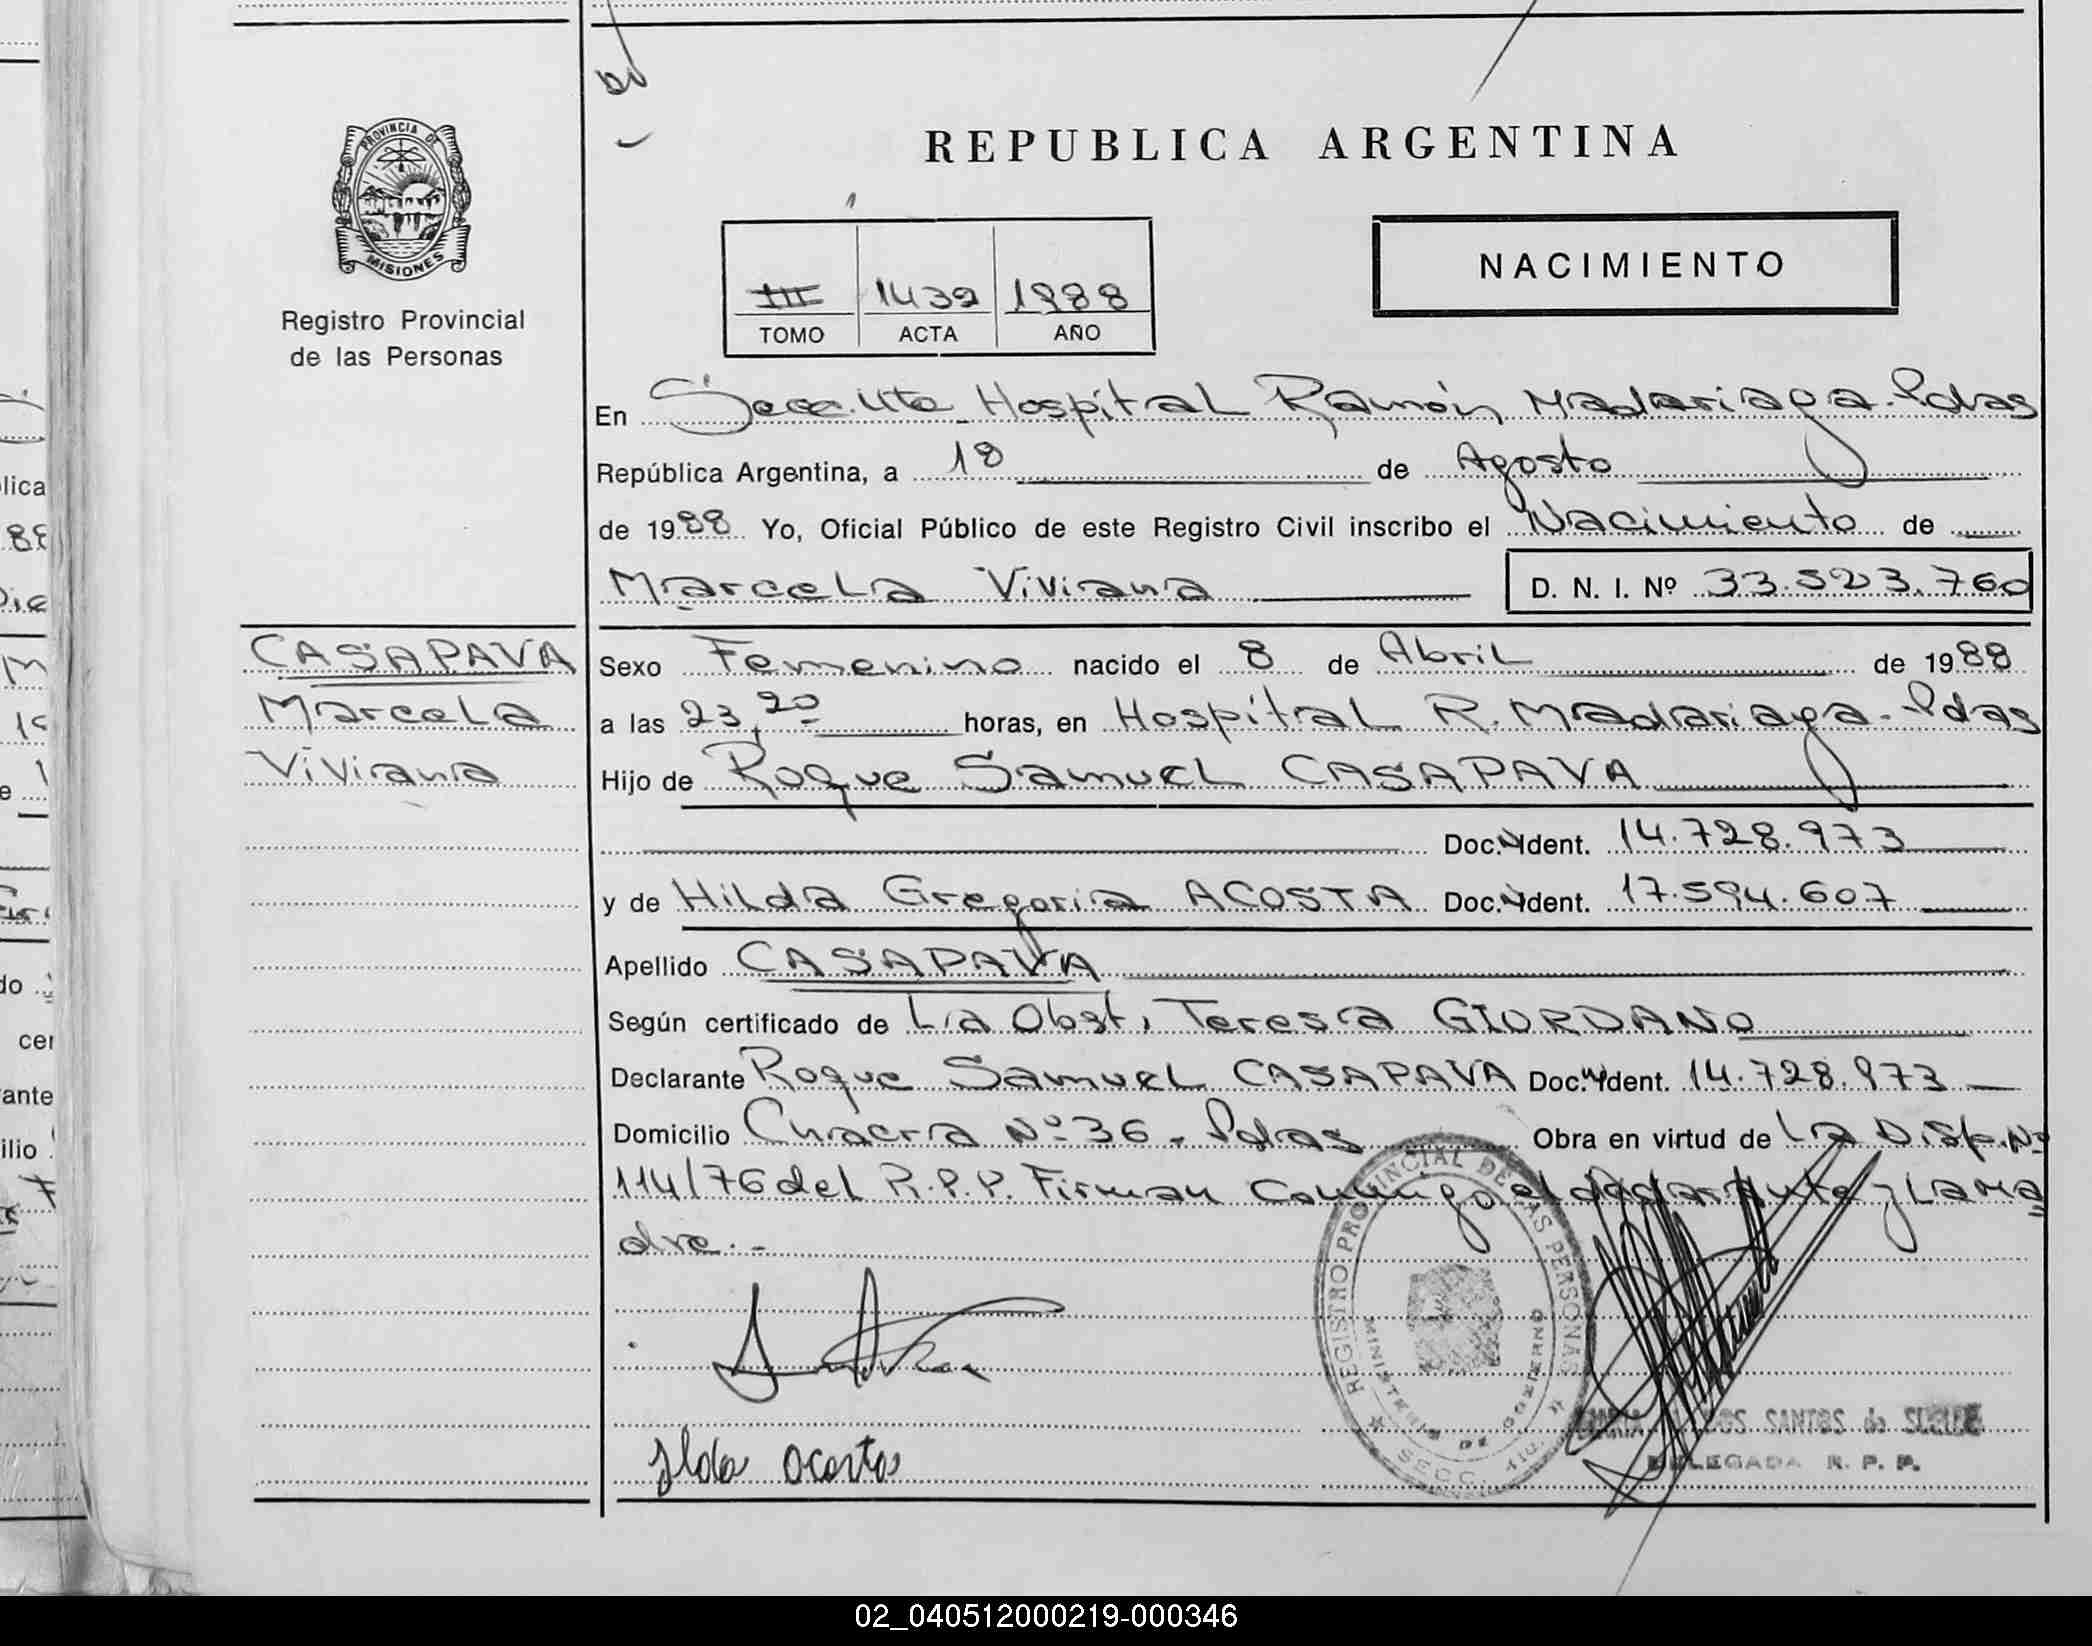 REPUBLICA ARGENTINA
PROVINCIA DE MISIONES
Registro Provincial
de las Personas
III 1439 1988
TOMO ACTA AÑO
NACIMIENTO
En Secc. Hospital Ramón Madariaga. Pdas
República Argentina, a 18 de Agosto
de 1988 Yo, Oficial Público de este Registro Civil inscribo el Nacimiento de
Marcela Viviana D. N. I. Nº 33.523.760
CASAPAVA
Marcela
Viviana
Sexo Femenino nacido el 8 de Abril de 1988
a las 23,20 horas, en Hospital R. Madariaga. Pdas
Hijo de Roque Samuel CASAPAVA
Doc. Ident. 14.728.973
y de Hilda Gregoria ACOSTA Doc. Ident. 17.594.607
Apellido CASAPAVA
Según certificado de La Obst. Teresa GIORDANO
Declarante Roque Samuel CASAPAVA Doc. Ident. 14.728.973
Domicilio Chacra Nº 36 - Pdas Obra en virtud de La Disp. Nº
114/76 del R.P.P. Firman Conmigo el declarante y La ma
dre.-
REGISTRO PROVINCIAL DE LAS PERSONAS
MINISTERIO DE GOBIERNO
SECC.
Ilda Acosta
DOS SANTOS de
DELEGADA R. P. P.
02_040512000219-000346